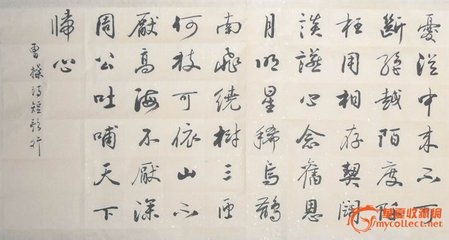 憂從中来不可
斷絕越陌度阡
枉用相存契闊
談讌心念舊恩
月明星稀烏鵲
南飛繞樹三匝
何枝可依山不
厭高海不厭深
周公吐哺天下
歸心
曹操詩短歌行
华夏收藏网
mycollect.net